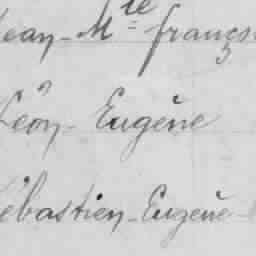 Jean-Mie franç
Léon-Eugène
Sébastien-Eugène